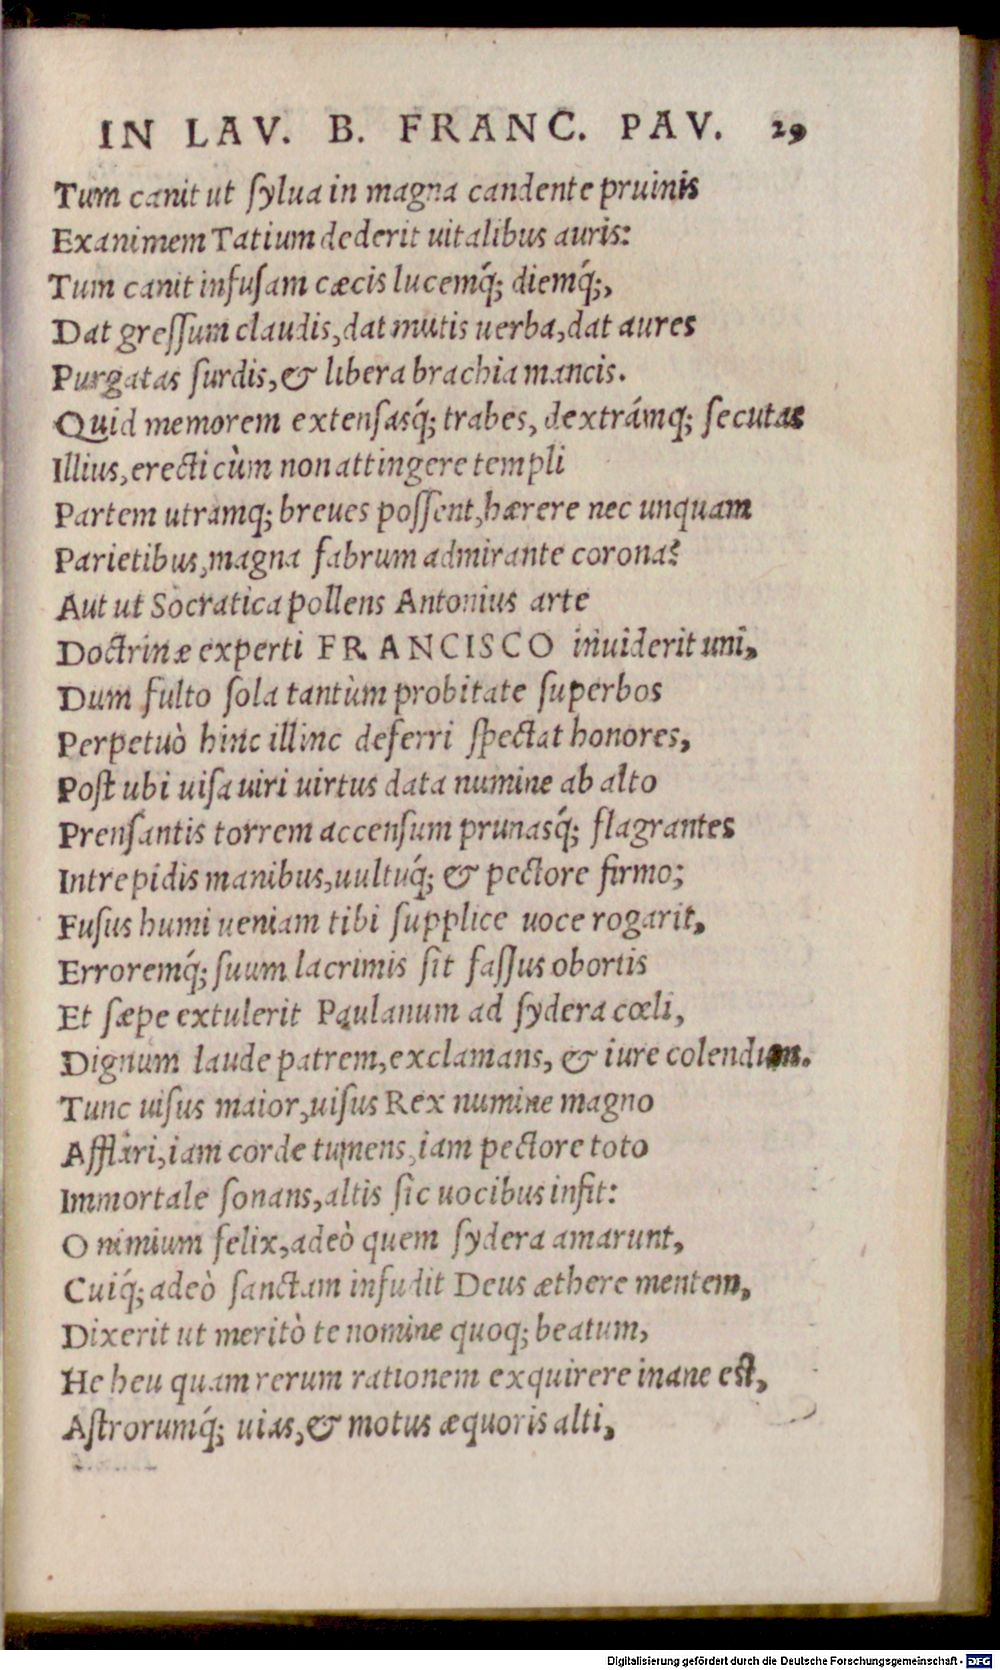 IN LAV. B. FRANC. PAV. 29
Tum canit ut ſylua in magna candente pruinis
Exanimem Tatium dederit uitalibus auris:
Tum canit infuſam cæcis lucemq́; diemq́;,
Dat greſſum claudis, dat mutis uerba, dat aures
Purgatas ſurdis, & libera brachia mancis.
Quid memorem extenſasq́; trabes, dextrámq; ſecutas
Illius, erecti cùm non attingere templi
Partem utramq; breues poſſent, hærere nec unquam
Parietibus, magna fabrum admirante corona?
Aut ut Socratica pollens Antonius arte
Doctrinæ experti FRANCISCO inuiderit uni,
Dum fulto ſola tantùm probitate ſuperbos
Perpetuò hinc illinc deferri ſpectat honores,
Poſt ubi uiſa uiri uirtus data numine ab alto
Prenſantis torrem accenſum prunasq́; flagrantes
Intrepidis manibus, uultuq́; & pectore firmo;
Fuſus humi ueniam tibi ſupplice uoce rogarit,
Erroremq́; ſuum lacrimis ſit faſſus obortis
Et ſæpe extulerit Paulanum ad ſydera cœli,
Dignum laude patrem, exclamans, & iure colendum.
Tunc uiſus maior, uiſus Rex numine magno
Afflari, iam corde tumens, iam pectore toto
Immortale ſonans, altis ſic uocibus infit:
O nimium felix, adeò quem ſydera amarunt,
Cuiq́; adeò ſanctam infudit Deus æthere mentem,
Dixerit ut meritò te nomine quoq; beatum,
He heu quam rerum rationem exquirere inane eſt,
Aſtrorumq́; uias, & motus æquoris alti,
Digitalisierung gefördert durch die Deutsche Forschungsgemeinschaft - DFG